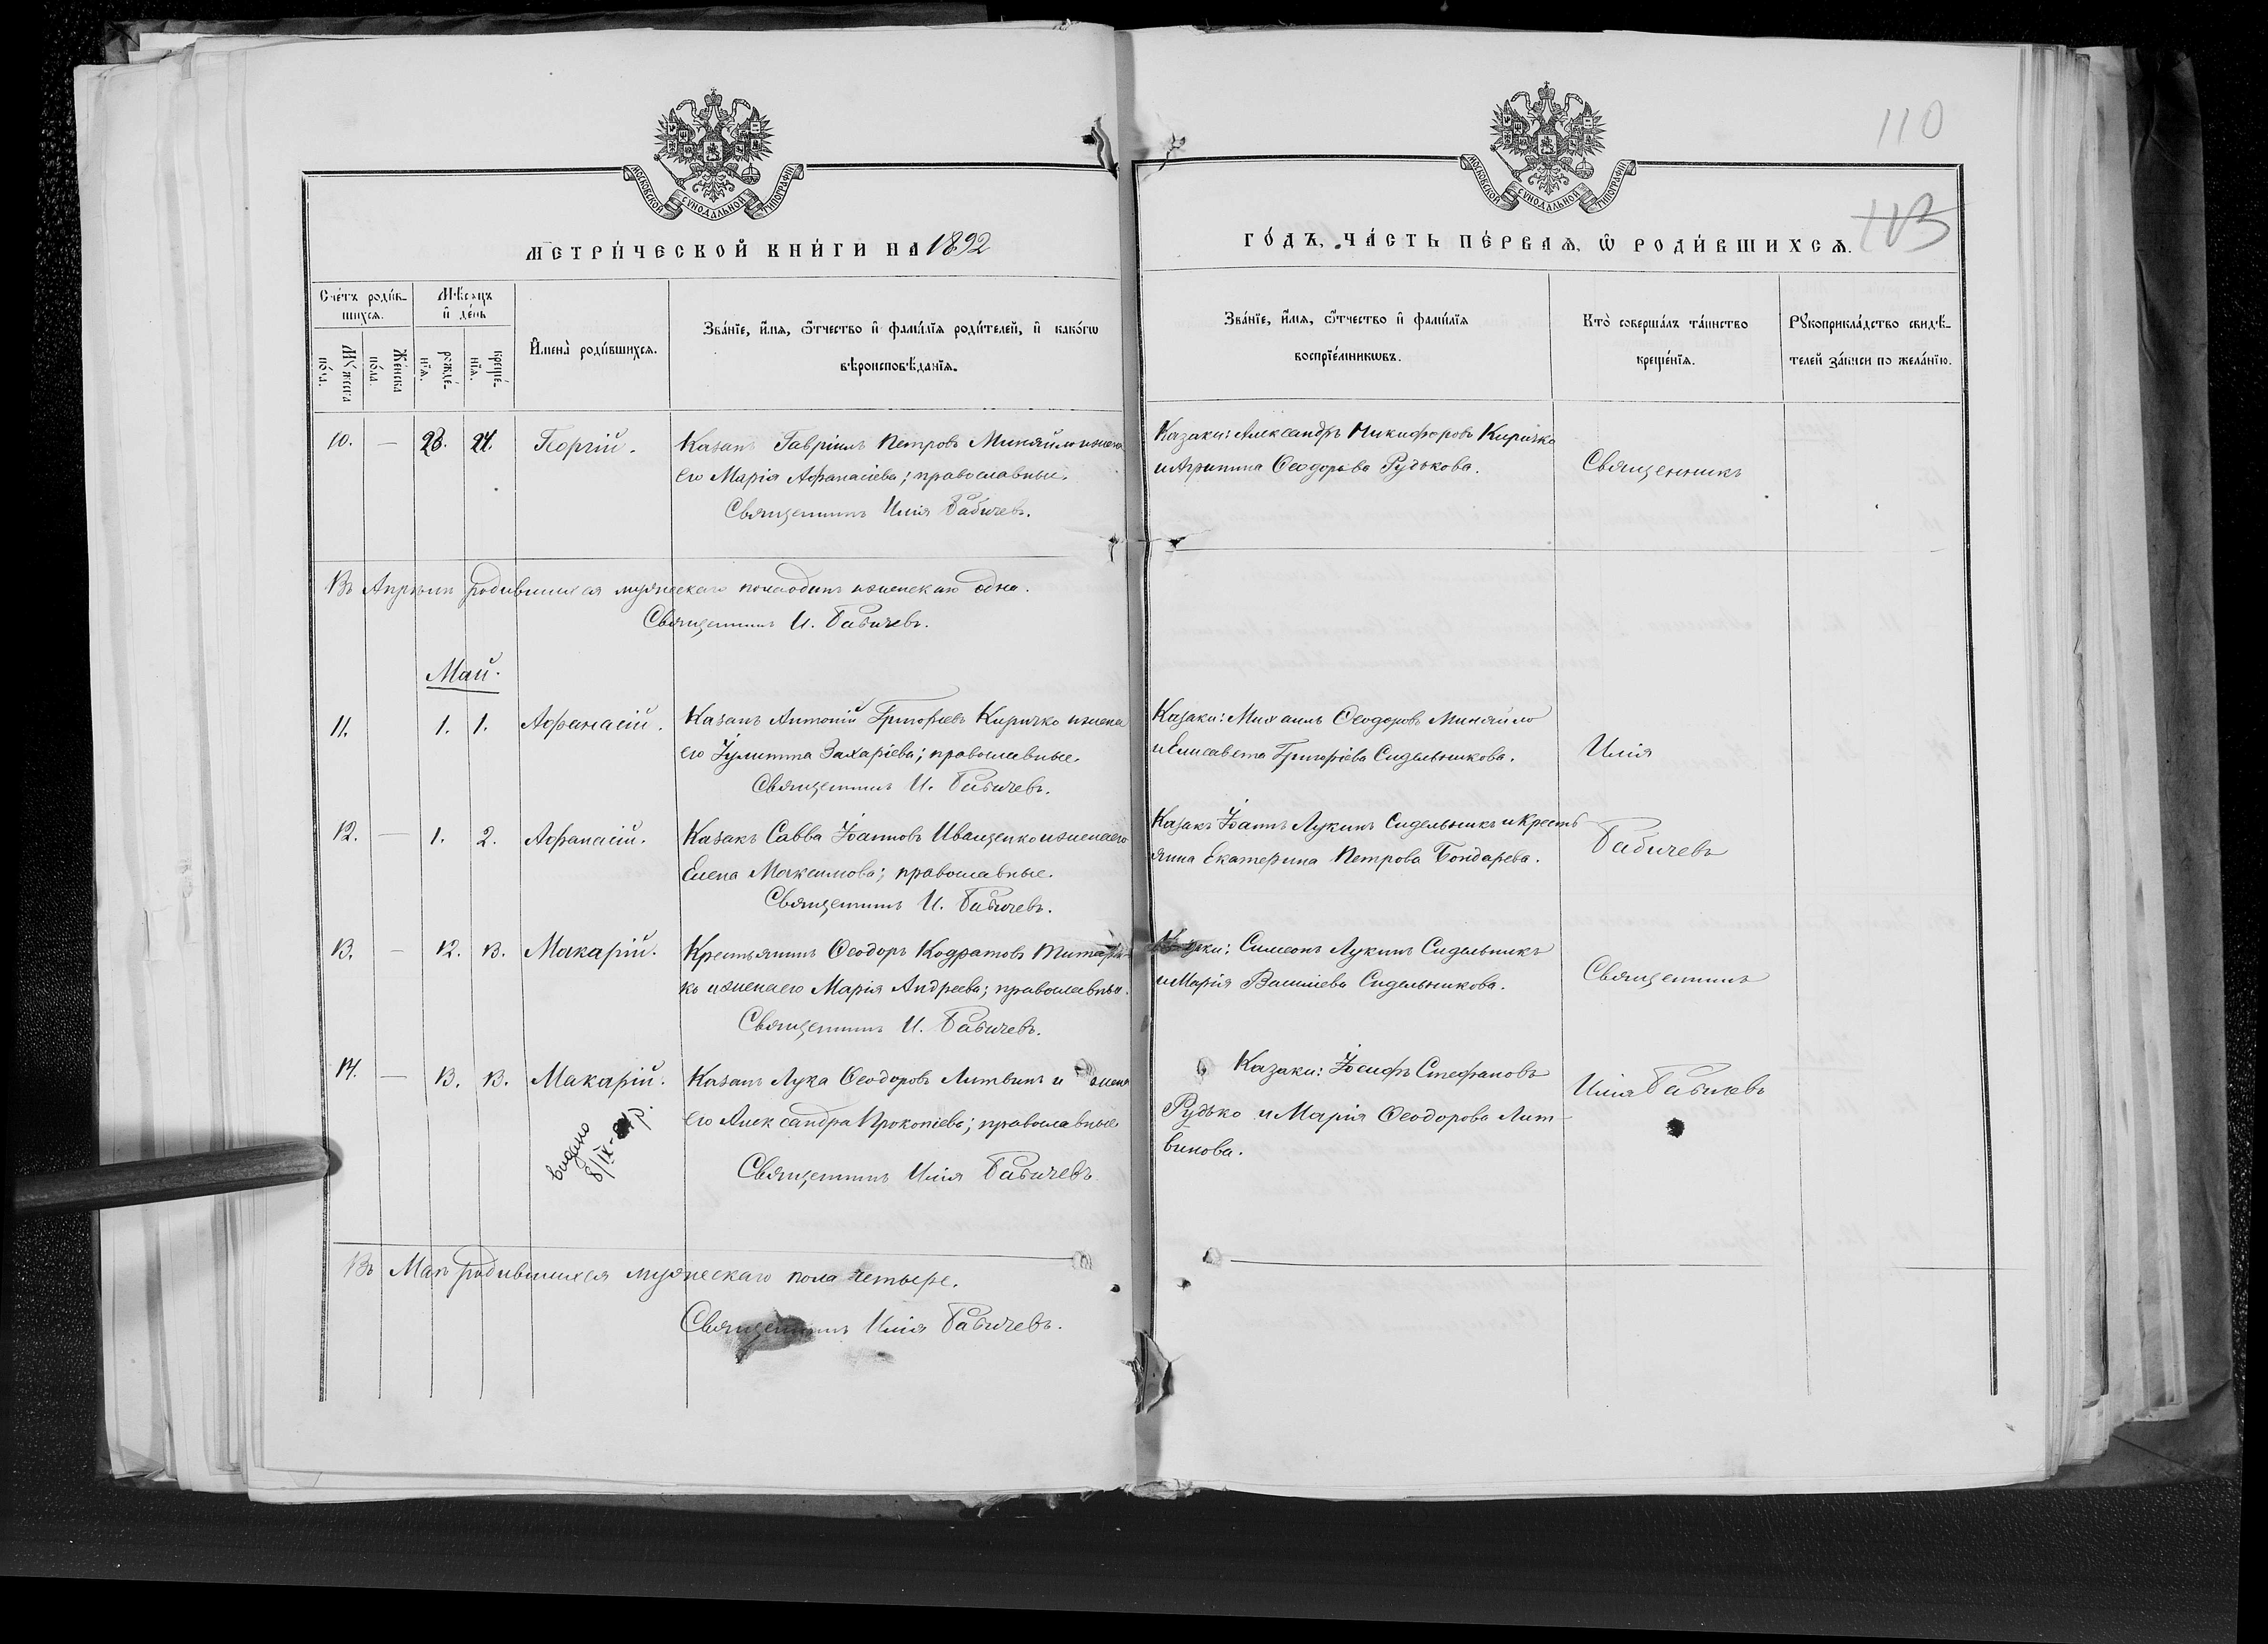 МОСКОВСКОЙ СѴНОДАЛЬНОЙ ТИПОГРАФІИ
МОСКОВСКОЙ СѴНОДАЛЬНОЙ ТИПОГРАФІИ
110
113
МЕТРИ́ЧЕСКОЙ КНИ́ГИ НА 1892
ГО́ДЪ, ЧА́СТЬ ПЕ́РВАѦ, Ѡ РОДИ́ВШИХСѦ.
Сче́тъ роди́в-
шихсѧ.
Мѣсѧцъ
и҆ де́нь
Мꙋ́жеска
по́ла.
Же́нска
по́ла.
рожде́-
нїѧ.
креще́-
нїѧ.
И҆мена̀ роди́вшихсѧ.
Зва́нїе, и҆́мѧ, ѻ҆́тчество и҆ фами́лїѧ роди́телей, и҆ како́гѡ
вѣроисповѣ́данїѧ.
Зва́нїе, и҆́мѧ, ѻ҆́тчество и҆ фами́лїѧ
воспрїе́мникѡвъ.
Кто̀ соверша́лъ та́инство
креще́нїѧ.
Рꙋкоприкла́дство свидѣ́-
телей за́писи по жела́нїю.
10. — 23. 24. Георгій. Казакъ Гавріилъ Петровъ Миняйло и жена
его Марія Аѳанасіева; православные.
Священникъ Илія Бабичевъ.
Казаки: Александръ Никифоровъ Киричко
и Агрипина Ѳеодорова Рудькова.
Священникъ
Въ Апрѣлѣ родившихся мужескаго пола одинъ и женскаго одна.
Священникъ И. Бабичевъ.
Май.
11. 1. 1. Аѳанасій. Казакъ Антоній Григоріевъ Киричко и жена
его Іулитта Захаріева; православные.
Священникъ И. Бабичевъ.
Казаки: Михаилъ Ѳеодоровъ Миняйло
и Елисавета Григоріева Сидельникова.
Илія
12. — 1. 2. Аѳанасій. Казакъ Савва Іоанновъ Иващенко и жена его
Елена Максимова; православные.
Священникъ И. Бабичевъ.
Казакъ Іоаннъ Лукинъ Сидельникъ и кресть-
янка Екатерина Петрова Бондарева.
Бабичевъ
13. — 12. 13. Макарій. Крестьянинъ Ѳеодоръ Кодратовъ
и жена его Марія Андреева; православные.
Священникъ И. Бабичевъ.
Казаки: Симеонъ Лукинъ Сидельникъ
и Марія Василіева Сидельникова.
Священникъ
14. — 13. 13. Макарій. Казакъ Лука Ѳеодоровъ Литвинъ и жена
его Александра Прокопіева; православные
Священникъ Илія Бабичевъ
видано
8/IX-
Казаки: Іосифъ Стефановъ
Рудько и Марія Ѳеодорова Лит-
винова.
Илія Бабичевъ
Въ Маѣ родившихся мужескаго пола четыре.
Священникъ Илія Бабичевъ.